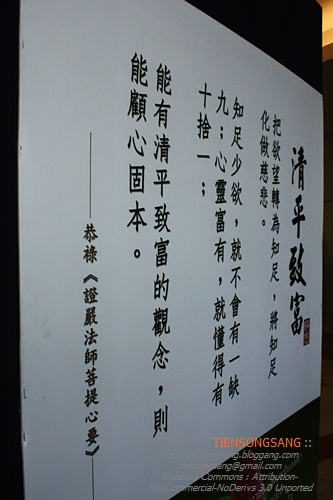 清平致富
把欲望轉為知足,將知足
化做慈悲。
知足少欲,就不會有一缺
九;心靈富有,就懂得有
十捨一;
能有清平致富的觀念,則
能顧心固本。
——恭祿《證嚴法師菩提心要》——
TIENSONGSANG ::
tiensongsang.bloggang.com
tiensongsang@gmail.com
Creative Commons : Attribution-
NonCommercial-NoDerivs 3.0 Unported